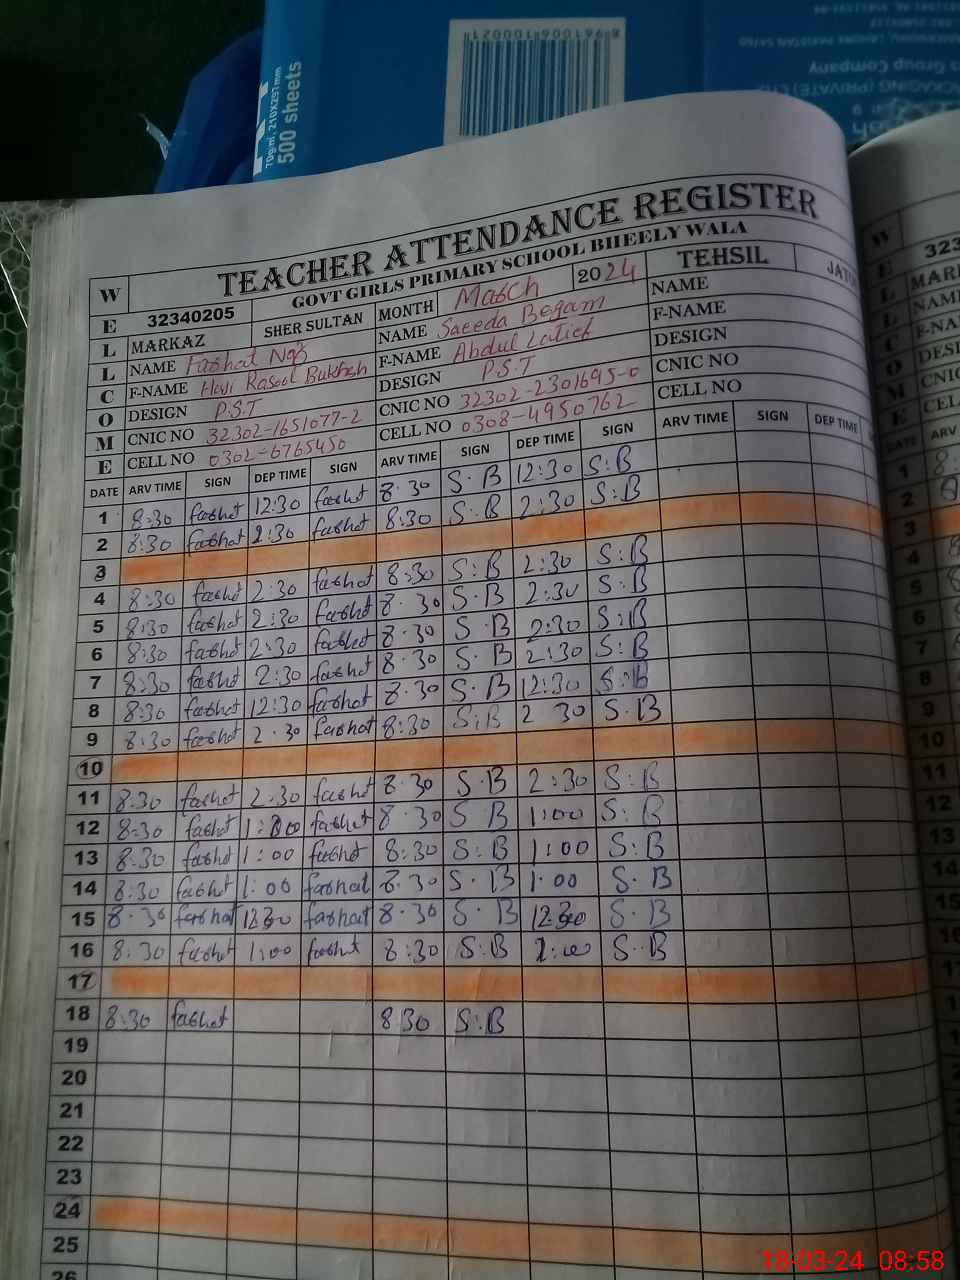 8961006110002
70g/m², 210X297mm
500 sheets
TEACHER ATTENDANCE REGISTER
GOVT GIRLS PRIMARY SCHOOL BHEELY WALA
W E L L C O M E
32340205 MONTH March 2024 TEHSIL
MARKAZ SHER SULTAN NAME Saeeda Begam NAME
NAME Farhat Naz F-NAME Abdul Latief F-NAME
F-NAME Haji Rasool Bukhsh DESIGN P.S.T DESIGN
DESIGN P.S.T CNIC NO 32302-2301695-0 CNIC NO
CNIC NO 32302-1651077-2 CELL NO 0308-4950762 CELL NO
CELL NO 0302-6765450
DATE ARV TIME SIGN DEP TIME SIGN ARV TIME SIGN DEP TIME SIGN ARV TIME SIGN DEP TIME
1 8:30 farhat 12:30 farhat 8:30 S.B 12:30 S:B
2 8:30 farhat 2:30 farhat 8:30 S:B 2:30 S:B
3
4 8:30 farhat 2:30 farhat 8:30 S:B 2:30 S:B
5 8:30 farhat 2:30 farhat 8.30 S.B 2:30 S:B
6 8:30 farhat 2:30 farhat 8.30 S.B 2:30 S:B
7 8:30 farhat 2:30 farhat 8.30 S.B 2:30 S:B
8 8:30 farhat 12:30 farhat 8.30 S.B 12:30 S:B
9 8:30 farhat 2.30 farhat 8:30 S:B 2 30 S.B
10
11 8:30 farhat 2.30 farhat 8.30 S.B 2:30 S:B
12 8:30 farhat 1:00 farhat 8.30 S B 1:00 S:B
13 8:30 farhat 1:00 farhat 8:30 S:B 1:00 S:B
14 8:30 farhat 1:00 farhat 8.30 S.B 1:00 S.B
15 8.30 farhat 12:30 farhat 8.30 S.B 12:30 S.B
16 8:30 farhat 1:00 farhat 8:30 S:B 1:00 S.B
17
18 8:30 farhat 8:30 S:B
19
20
21
22
23
24
25
26
18-03-24 08:58